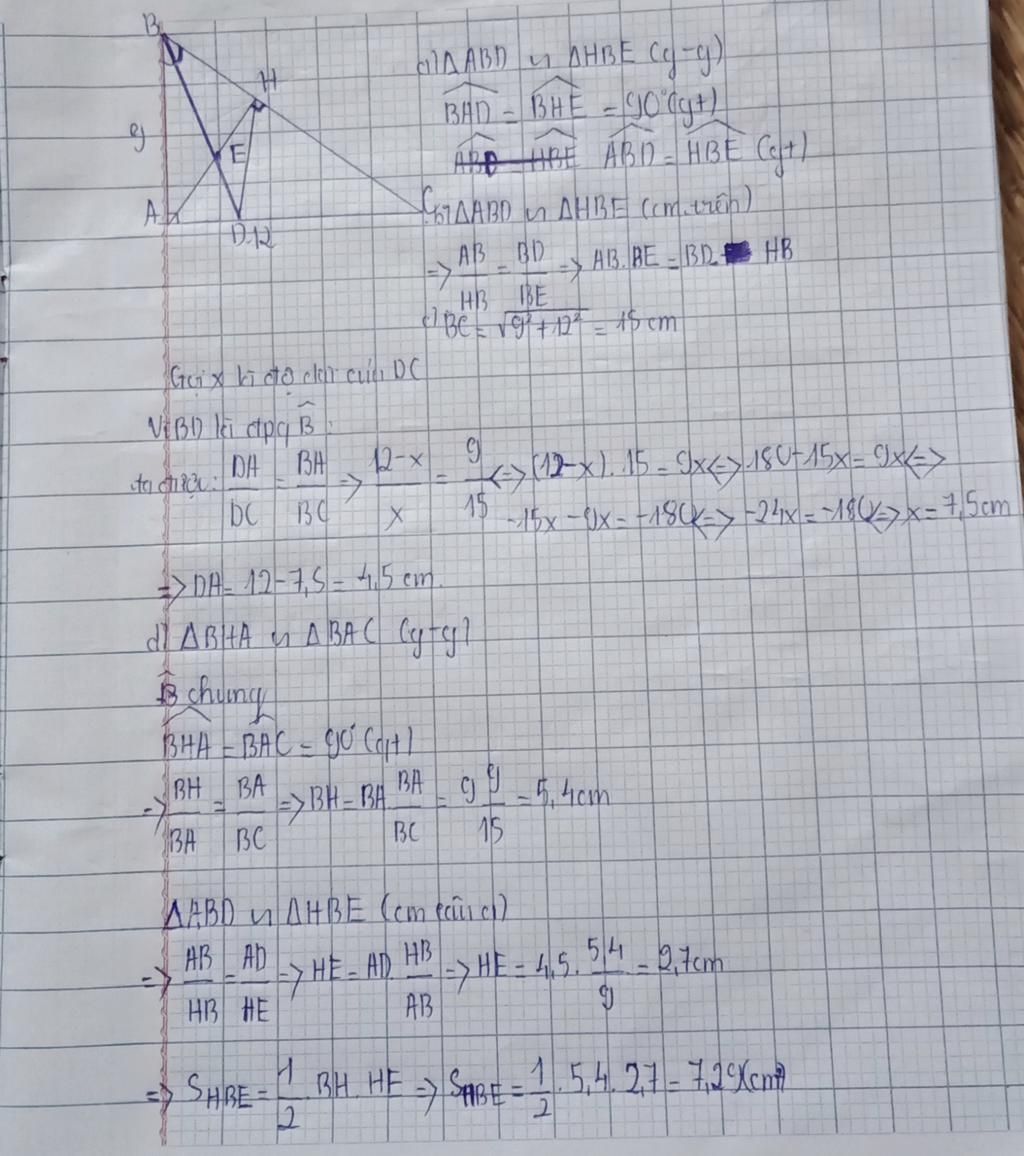 B
H
9
E
A
D 12
C
a) ΔABD ∽ ΔHBE (g-g)
BAD^ = BHE^ = 90° (gt)
ABD^ = HBE^ (gt)
b) ΔABD ∽ ΔHBE (cm.trên)
=> AB/HB = BD/BE => AB.BE = BD. HB
c) BC = √9²+12² = 15 cm
Gọi x là độ dài của DC
Vì BD là đpg B^:
ta được: DA/DC = BA/BC => 12-x/x = 9/15 <=> (12-x).15 = 9x <=> 180-15x = 9x <=>
-15x - 9x = -180 <=> -24x = -180 <=> x = 7,5cm
=> DA = 12-7,5 = 4,5 cm.
d) ΔBHA ∽ ΔBAC (g-g)
B^ chung
BHA^ = BAC^ = 90° (gt)
=> BH/BA = BA/BC => BH = BA BA/BC = 9 9/15 = 5,4cm
ΔABD ∽ ΔHBE (cm câu a)
=> AB/HB = AD/HE => HE = AD. HB/AB => HE = 4,5. 5,4/9 = 2,7cm
=> SHBE = 1/2 BH.HE => SHBE = 1/2.5,4.2,7 = 7,29(cm²)